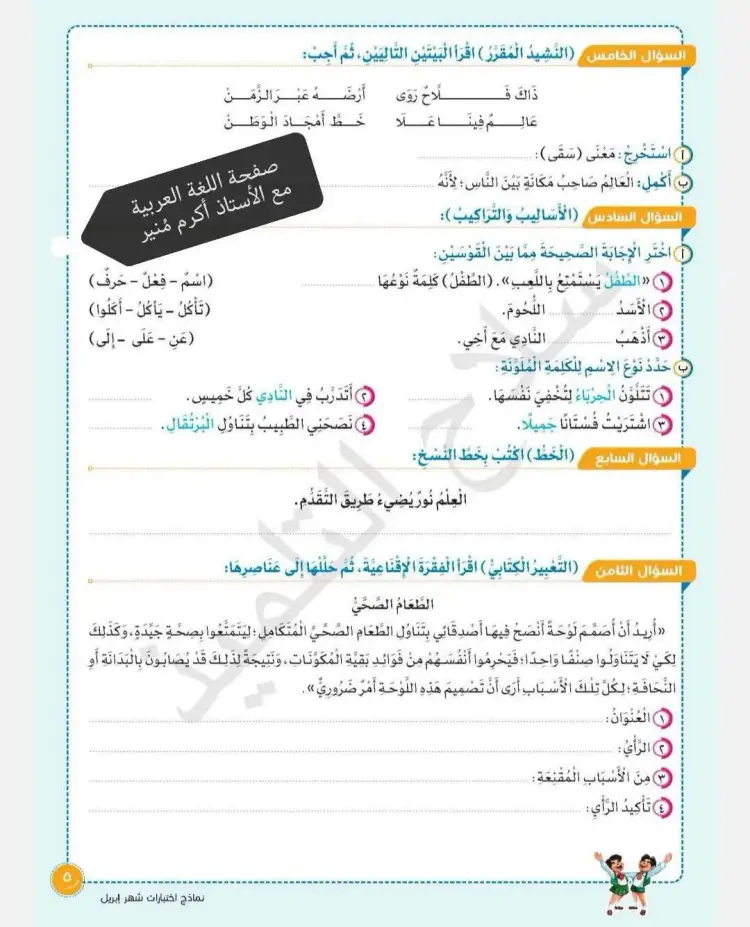 السؤال الخامس (النَّشِيدُ الْمُقَرَّرُ) اقْرَأِ الْبَيْتَيْنِ التَّالِيَيْنِ، ثُمَّ أَجِبْ:
ذَاكَ فَــــــــــلَّاحٌ رَوَى أَرْضَـــــهُ عَبْـــرَ الزَّمَـــنْ
عَالِــــمٌ فِينَـــــا عَــــلَا خَــطَّ أَمْجَــادَ الْـوَطَــنْ
أ اسْتَخْرِجْ: مَعْنَى (سَقَى):
ب أَكْمِلْ: الْعَالِمُ صَاحِبُ مَكَانَةٍ بَيْنَ النَّاسِ؛ لِأَنَّهُ
صفحة اللغة العربية
مع الأستاذ أكرم مُنير
السؤال السادس (الْأَسَالِيبُ وَالتَّرَاكِيبُ):
أ اخْتَرِ الْإِجَابَةَ الصَّحِيحَةَ مِمَّا بَيْنَ الْقَوْسَيْنِ:
١ «الطِّفْلُ يَسْتَمْتِعُ بِاللَّعِبِ». (الطِّفْلُ) كَلِمَةٌ نَوْعُهَا (اسْمٌ – فِعْلٌ – حَرفٌ)
٢ الْأَسَدُ اللُّحُومَ. (تَأْكُلُ – يَأْكُلُ – أَكَلُوا)
٣ أَذْهَبُ النَّادِي مَعَ أَخِي. (عَنِ – عَلَى – إلَى)
ب حَدِّدْ نَوْعَ الِاسْمِ لِلْكَلِمَةِ الْمُلَوَّنَةِ:
١ تَتَلَوَّنُ الْحِرْبَاءُ لِتُخْفِيَ نَفْسَهَا. ٢ أَتَدَرَّبُ فِي النَّادِي كُلَّ خَمِيسٍ.
٣ اشْتَرَيْتُ فُسْتَانًا جَمِيلًا. ٤ نَصَحَنِي الطَّبِيبُ بِتَنَاوُلِ الْبُرْتُقَالِ.
السؤال السابع (الْخَطُّ) اكْتُبْ بِخَطِّ النَّسْخِ:
الْعِلْمُ نُورٌ يُضِيءُ طَرِيقَ التَّقَدُّمِ.
السؤال الثامن (التَّعْبِيرُ الْكِتَابِيُّ) اقْرَأِ الْفِقْرَةَ الْإِقْنَاعِيَّةَ، ثُمَّ حَلِّلْهَا إِلَى عَنَاصِرِهَا:
الطَّعَامُ الصِّحِّيُّ
«أُرِيدُ أَنْ أُصَمِّمَ لَوْحَةً أَنْصَحُ فِيهَا أَصْدِقَائِي بِتَنَاوُلِ الطَّعَامِ الصِّحِّيِّ الْمُتَكَامِلِ؛ لِيَتَمَتَّعُوا بِصِحَّةٍ جَيِّدَةٍ، وَكَذَلِكَ
لِكَيْ لَا يَتَنَاوَلُوا صِنْفًا وَاحِدًا؛ فَيَحْرِمُوا أَنْفُسَهُمْ مِنْ فَوَائِدِ بَقِيَّةِ الْمُكَوِّنَاتِ، وَنَتِيجَةً لِذَلِكَ قَدْ يُصَابُونَ بِالْبَدَانَةِ أَوِ
النَّحَافَةِ؛ لِكُلِّ تِلْكَ الْأَسْبَابِ أَرَى أَنَّ تَصْمِيمَ هَذِهِ اللَّوْحَةِ أَمْرٌ ضَرُورِيٌّ».
١ الْعُنْوَانُ:
٢ الرَّأْيُ:
٣ مِنَ الْأَسْبَابِ الْمُقْنِعَةِ:
٤ تَأْكِيدُ الرَّأْيِ:
نماذج اختبارات شهر إبريل
٥
سلاح التلميذ